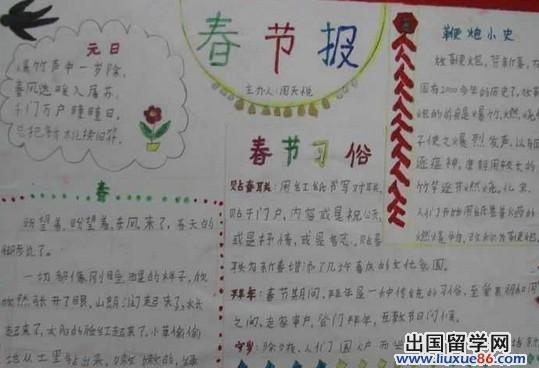 春节报
主办人:周天悦
元日
爆竹声中一岁除,
春风送暖入屠苏,
千门万户曈曈日,
总把新桃换旧符。
春
盼望着,盼望着,东风来了,春天的
脚步近了。
一切都像刚睡醒的样子,欣
欣然张开了眼,山朗润起来了,水长
起来了,太阳的脸红起来了,小草偷偷
地从土里钻出来,嫩嫩的,绿
春节习俗
贴春联:用红纸书写对联,
贴于门户,内容或是祝公天,
或是抒情,或是言志,贴春
联为新春增添了几许喜庆的文化氛围。
拜年:春节期间,拜年是一种传统的习俗,至爱亲朋和同
之间,走家串户,登门拜年,互致节日问候。
守岁:除夕夜,人们
鞭炮小史
放鞭炮,贺新春,
国有2000多年的历史了,
炮的前身是爆竹,燃烧
子使之爆烈发声,以
逐瘟神,唐朝
竹竿逐节燃烧,北宋
人们开始用
燃爆
出国留学网
www.liuxue86.com